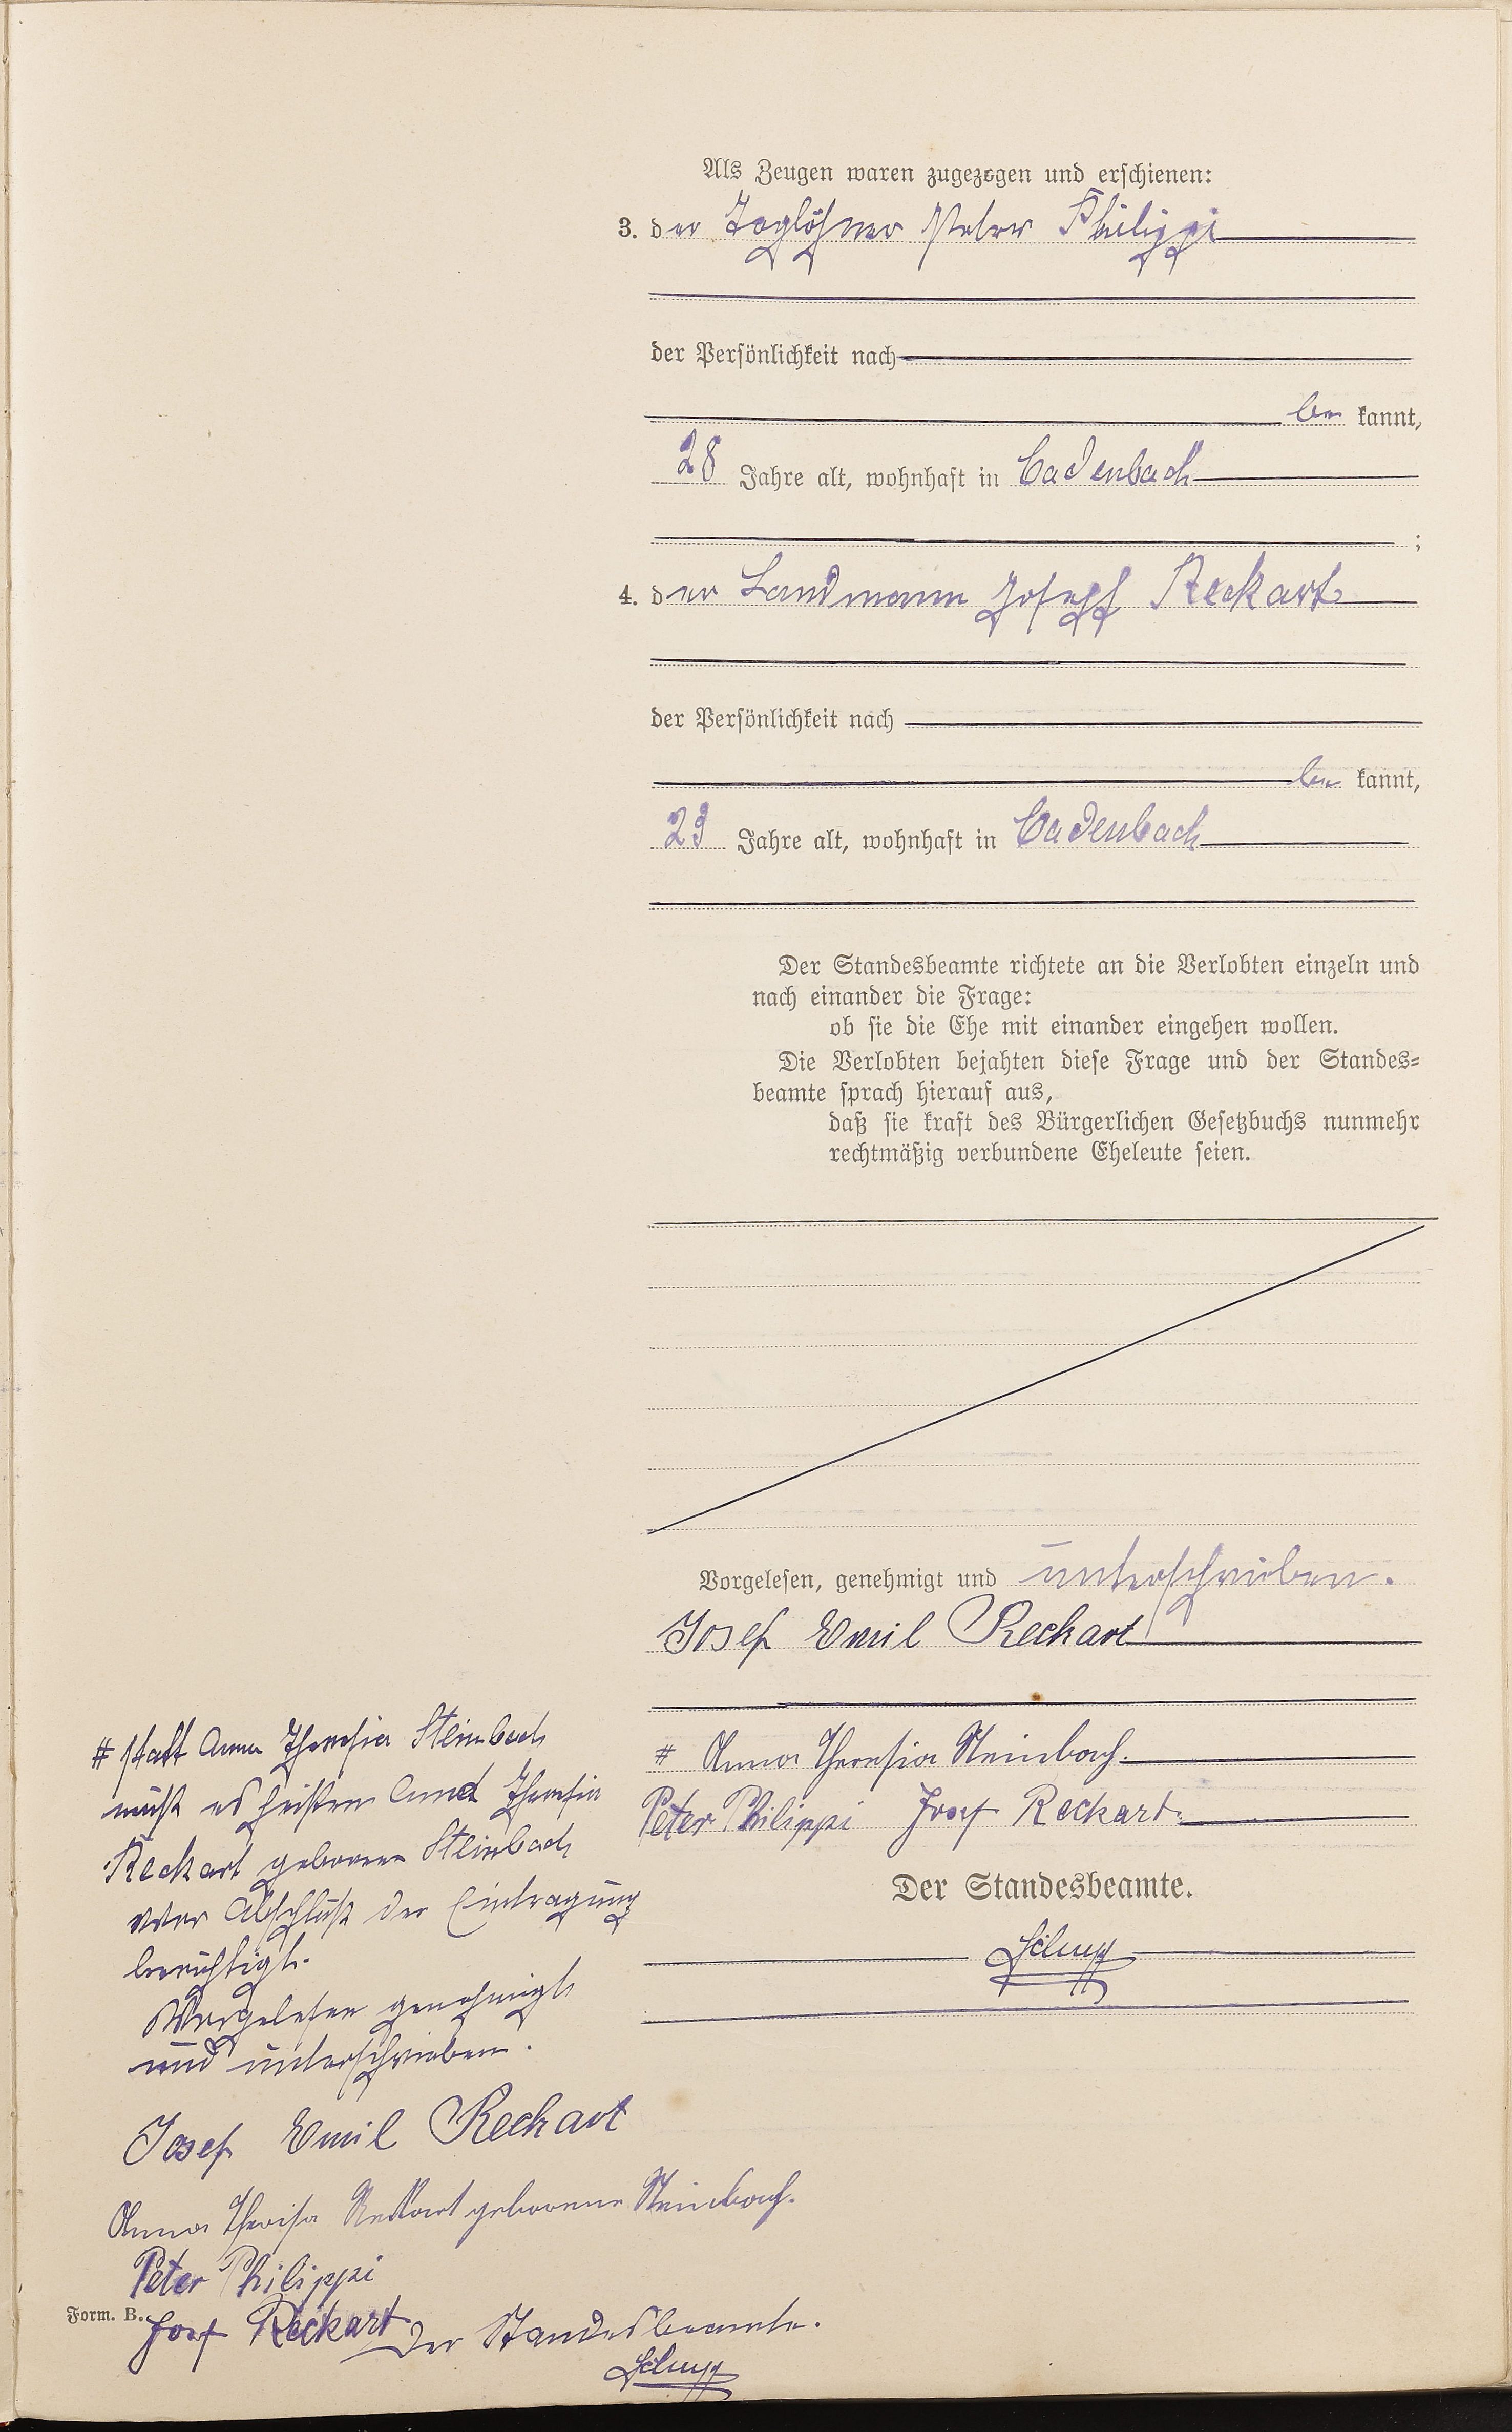 Als Zeugen waren zugezogen und erschienen:
3. der Taglöhner Peter Philippi
der Persönlichkeit nach
be kannt,
28 Jahre alt, wohnhaft in Cadenbach
;
4. der Landmann Joseph Reckart
der Persönlichkeit nach
be kannt,
23 Jahre alt, wohnhaft in Cadenbach
Der Standesbeamte richtete an die Verlobten einzeln und
nach einander die Frage:
ob sie die Ehe mit einander eingehen wollen.
Die Verlobten bejahten diese Frage und der Standes-
beamte sprach hierauf aus,
daß sie kraft des Bürgerlichen Gesetzbuchs nunmehr
rechtmäßig verbundene Eheleute seien.
Vorgelesen, genehmigt und unterschrieben.
Josef Emil Reckart
# Anna Theresia Steinbach.
Peter Philippi Josef Reckart.
Der Standesbeamte.
# statt Anna Theresia Steinbach
muß es heißen Anna Theresia
Reckart geborene Steinbach
vor Abschluß der Eintragung
berichtigt.
Vorgelesen genehmigt
und unterschrieben.
Josef Emil Reckart
Anna Theresia Reckart geborene Steinbach.
Peter Philippi
Josef Reckart
Der Standesbeamte.
Form. B.